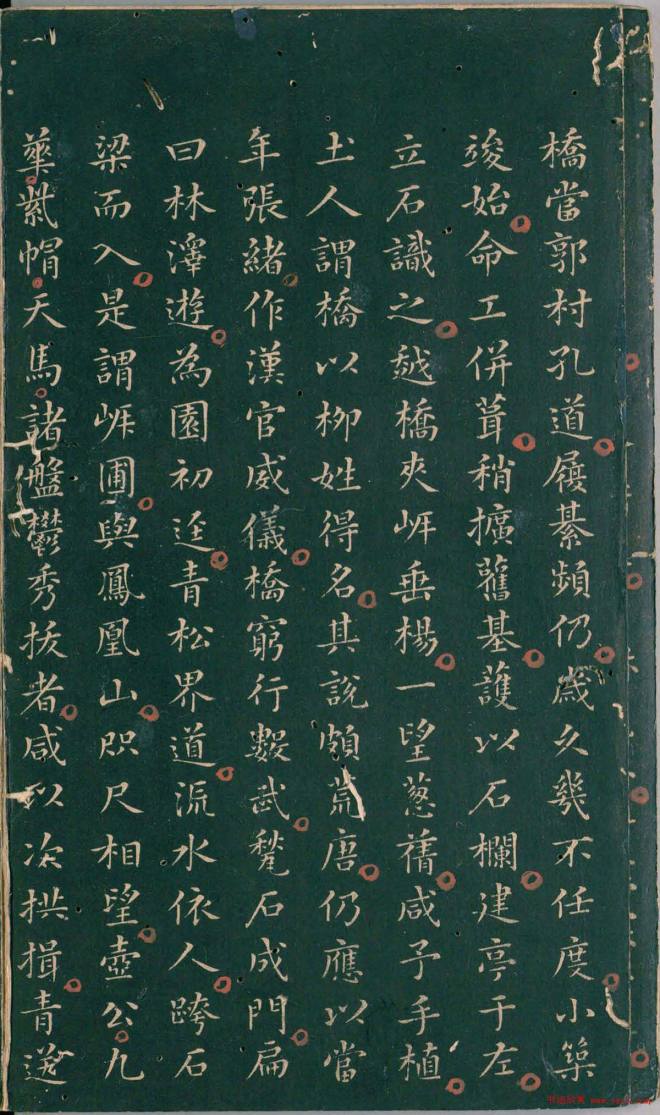 橋當郭村孔道屐綦頻仍歲久幾不任度小築
竣始命工併葺稍擴舊基護以石欄建亭于左
立石識之越橋夾岸垂楊一望葱蒨咸予手植
土人謂橋以柳姓得名其說頗荒唐仍應以當
年張緒作漢官威儀橋窮行數武甃石成門扁
曰林澤遊為園初逕青松界道流水依人跨石
梁而入是謂岸圃與鳳凰山咫尺相望壺公九
華紫帽天馬諸盤鬱秀拔者咸以次拱揖青送